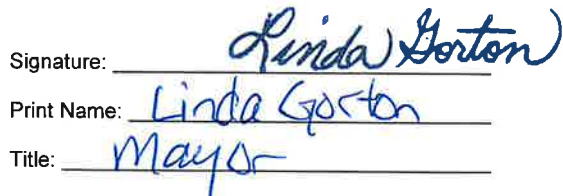 Signature: Linda Gorton
Print Name: Linda Gorton
Title: Mayor